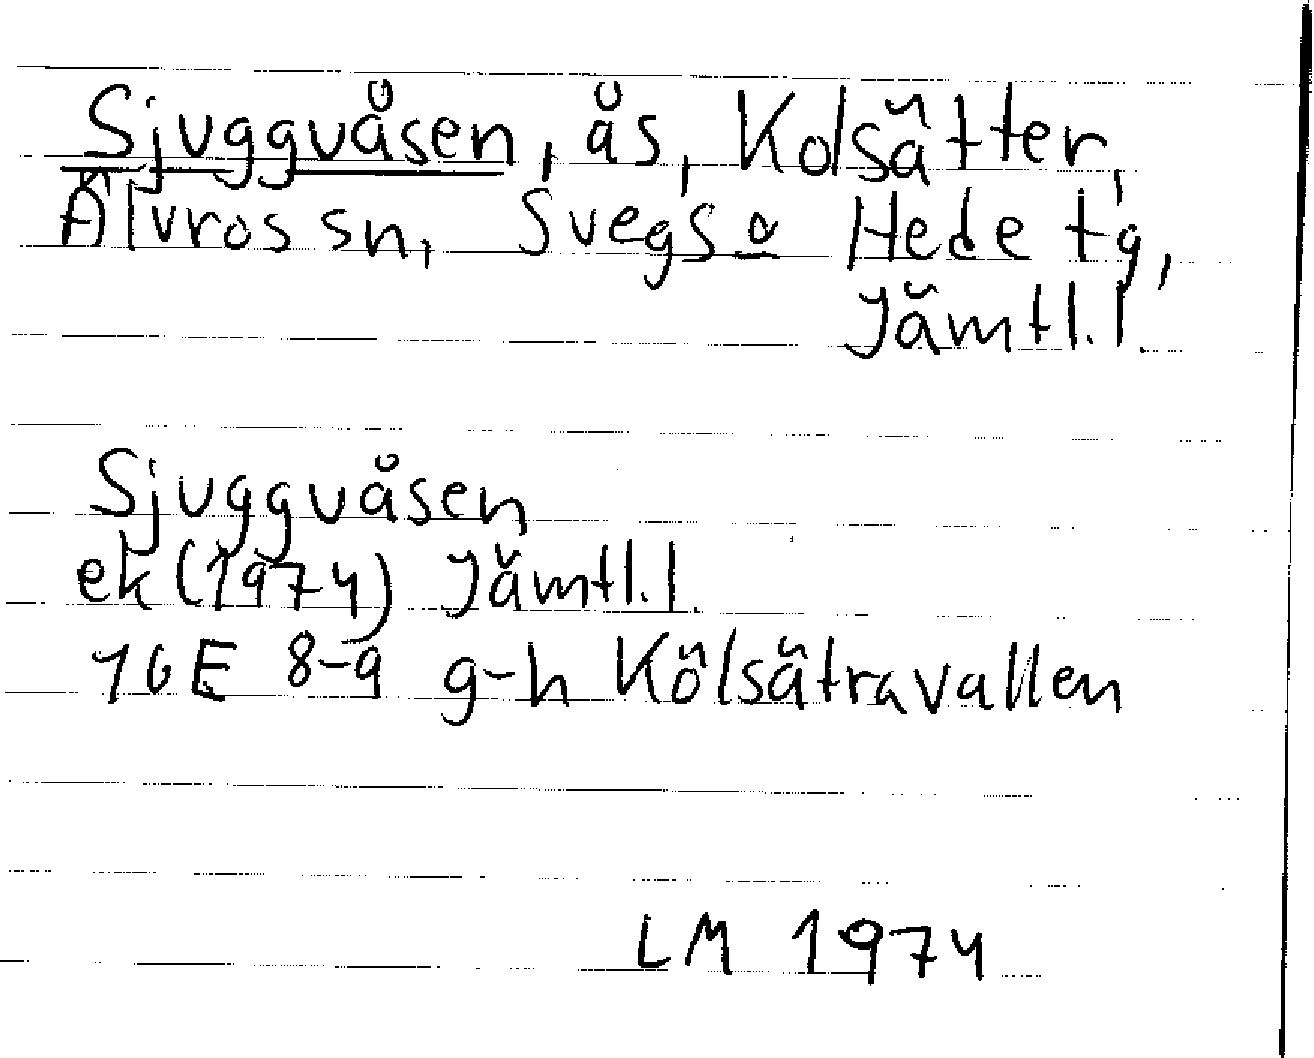 Sjugguåsen, ås, Kolsätter,
Älvros sn, Svegs o Hede tg,
Jämtl. l.
Sjugguåsen
ek (1974) Jämtl. l.
16E 8-9 g-h Kölsätravallen
LM 1974